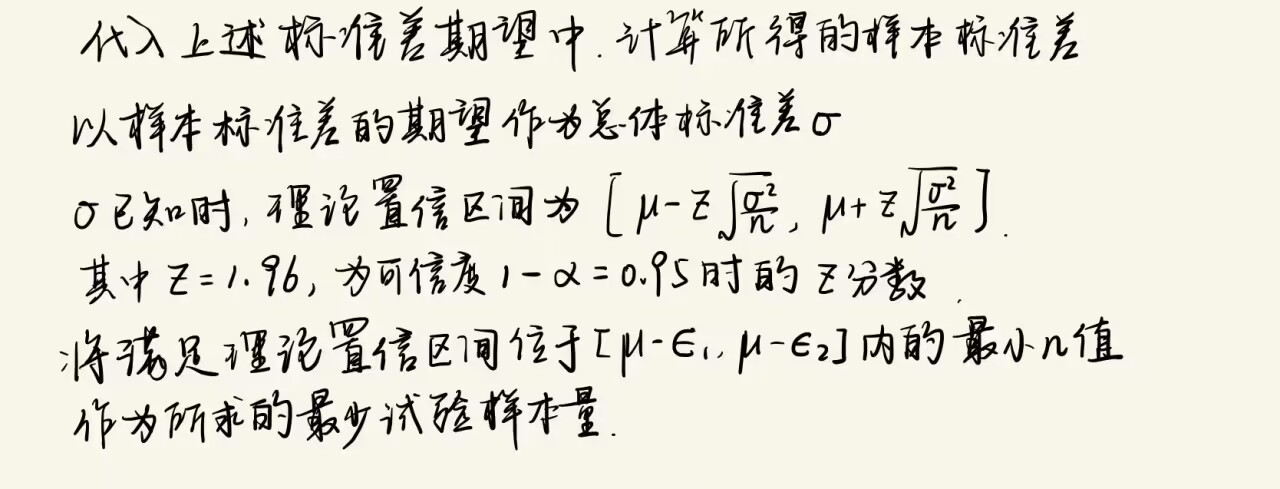 代入上述标准差期望中.计算所得的样本标准差
以样本标准差的期望作为总体标准差σ
σ已知时,理论置信区间为 [μ-z√(σ²/n), μ+z√(σ²/n)].
其中 z=1.96, 为可信度 1-α=0.95时的 z分数.
将满足理论置信区间位于[μ-ϵ₁, μ-ϵ₂]内的最小n值
作为所求的最少试验样本量.